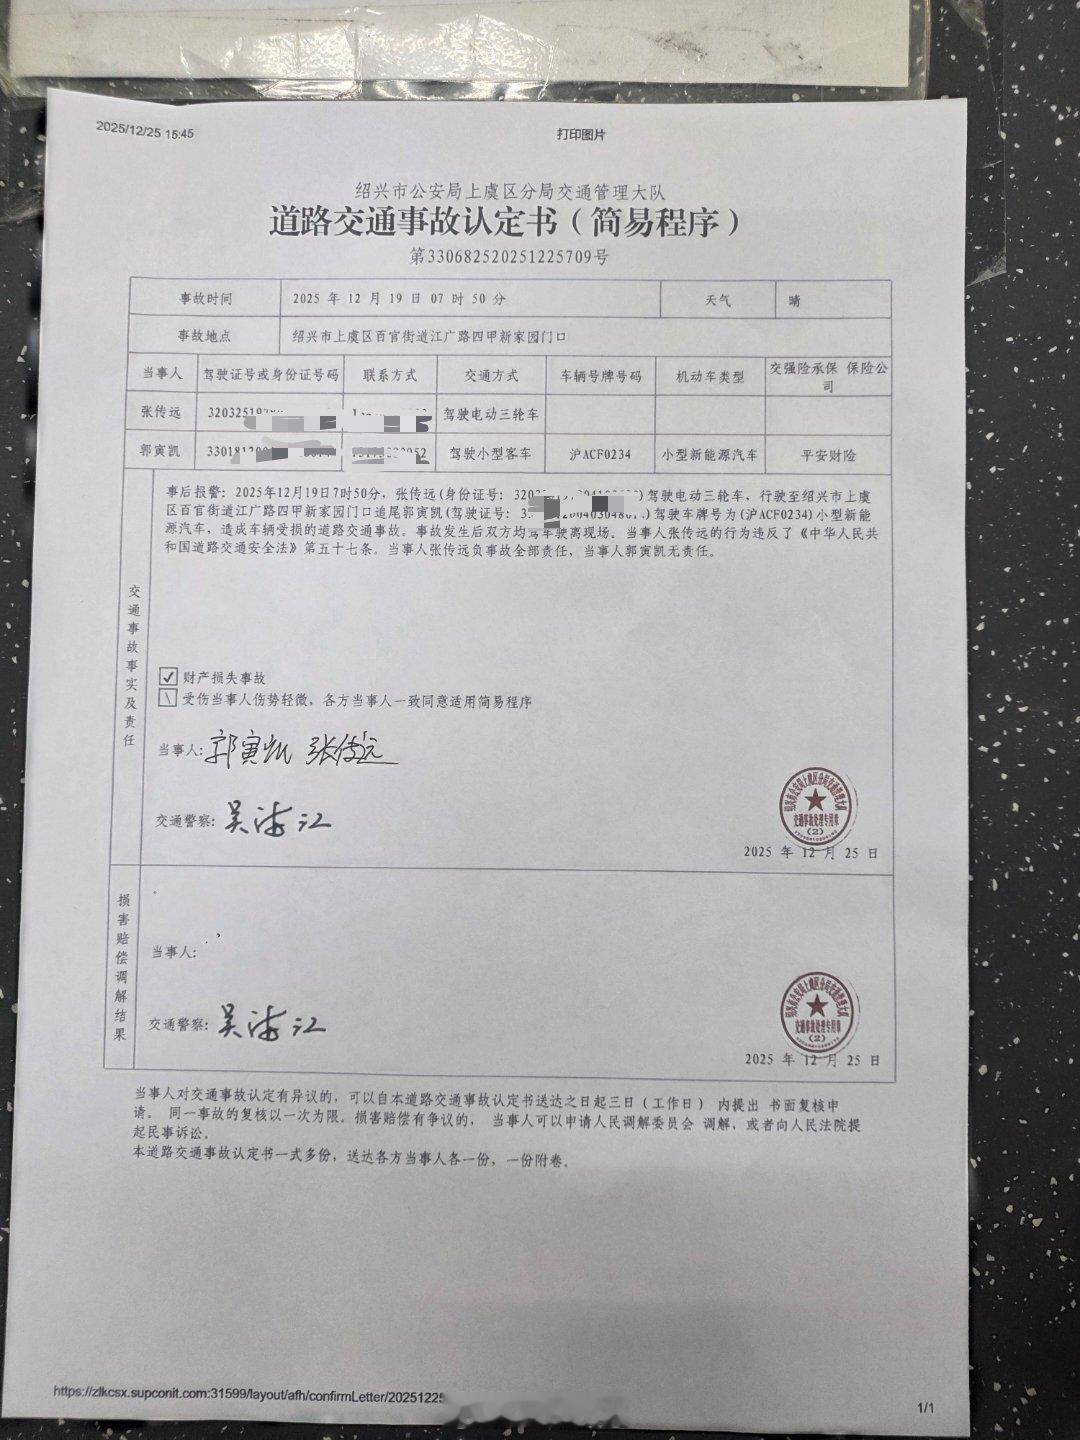 2025/12/25 15:45
打印图片
绍兴市公安局上虞区分局交通管理大队
道路交通事故认定书（简易程序）
第330682520251225709号
事故时间 2025 年 12 月 19 日 07 时 50 分 天气 晴
事故地点 绍兴市上虞区百官街道江广路四甲新家园门口
当事人 驾驶证号或身份证号码 联系方式 交通方式 车辆号牌号码 机动车类型 交强险承保 保险公司
张传远 驾驶电动三轮车
郭寅凯 驾驶小型客车 沪ACF0234 小型新能源汽车 平安财险
交通事故事实及责任
事后报警：2025年12月19日7时50分，张传远(身份证号： )驾驶电动三轮车，行驶至绍兴市上虞
区百官街道江广路四甲新家园门口追尾郭寅凯(驾驶证号： )驾驶车牌号为(沪ACF0234)小型新能
源汽车，造成车辆受损的道路交通事故。事故发生后双方均驾车驶离现场。当事人张传远的行为违反了《中华人民共
和国道路交通安全法》第五十七条。当事人张传远负事故全部责任，当事人郭寅凯无责任。
财产损失事故
受伤当事人伤势轻微，各方当事人一致同意适用简易程序
当事人：郭寅凯 张传远
交通警察：吴海江
绍兴市公安局上虞区分局交通管理大队
交通事故处理专用章
(2)
2025 年 12 月 25 日
损害赔偿调解结果
当事人：
交通警察：吴海江
绍兴市公安局上虞区分局交通管理大队
交通事故处理专用章
(2)
2025 年 12 月 25 日
当事人对交通事故认定有异议的，可以自本道路交通事故认定书送达之日起三日（工作日） 内提出 书面复核申
请。 同一事故的复核以一次为限。损害赔偿有争议的， 当事人可以申请人民调解委员会 调解，或者向人民法院提
起民事诉讼。
本道路交通事故认定书一式多份，送达各方当事人各一份，一份附卷。
https://zlkcsx.supconit.com:31599/layout/afh/confirmLetter/20251225
1/1